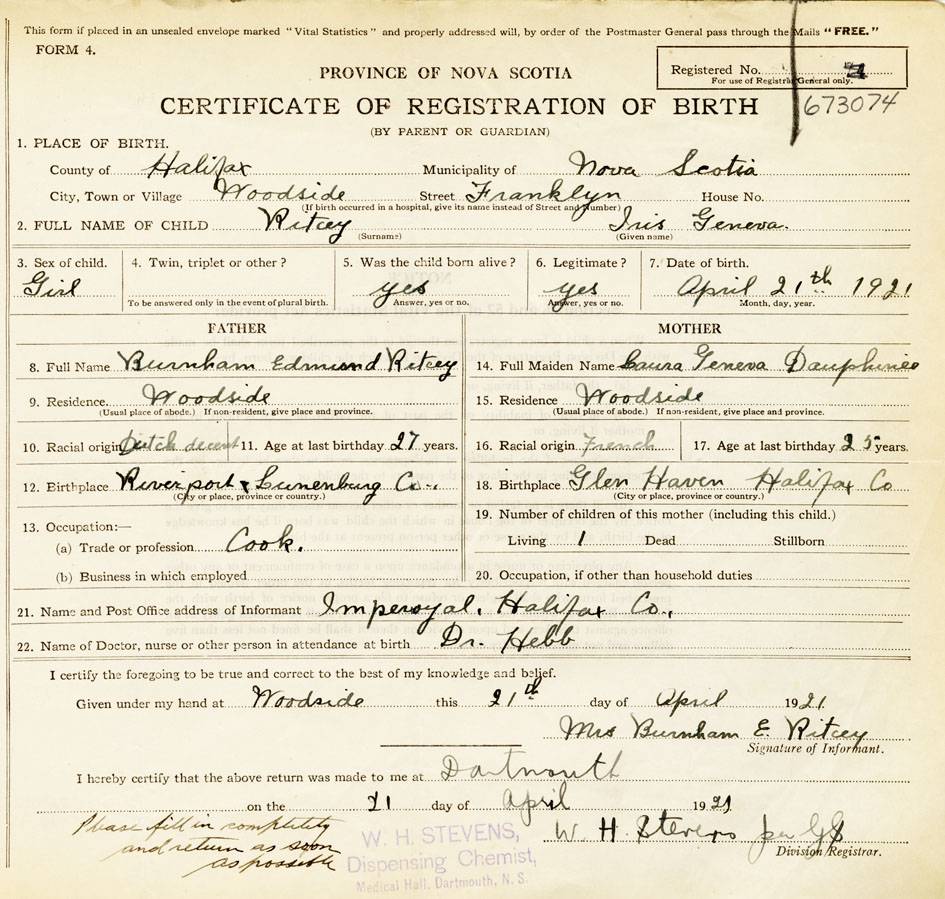 This form if placed in an unsealed envelope marked "Vital Statistics" and properly addressed will, by order of the Postmaster General pass through the Mails "FREE."
FORM 4.
Registered No.
For use of Registrar General only.
673074
PROVINCE OF NOVA SCOTIA
CERTIFICATE OF REGISTRATION OF BIRTH
(BY PARENT OR GUARDIAN)
1. PLACE OF BIRTH.
County of Halifax Municipality of Nova Scotia
City, Town or Village Woodside Street Franklyn House No.
(If birth occurred in a hospital, give its name instead of Street and Number)
2. FULL NAME OF CHILD Ritcey Iris Geneva.
(Surname) (Given name)
3. Sex of child. 4. Twin, triplet or other? 5. Was the child born alive? 6. Legitimate? 7. Date of birth.
Girl yes yes April 21th 1921
To be answered only in the event of plural birth. Answer, yes or no. Answer, yes or no. Month, day, year.
FATHER MOTHER
8. Full Name Burnham Edmund Ritcey 14. Full Maiden Name Laura Geneva Dauphinee
9. Residence. Woodside 15. Residence Woodside
(Usual place of abode.) If non-resident, give place and province. (Usual place of abode.) If non-resident, give place and province.
10. Racial origin Dutch decent 11. Age at last birthday 27 years. 16. Racial origin French 17. Age at last birthday 25 years.
12. Birthplace Riverport Lunenburg Co. 18. Birthplace Glen Haven Halifax Co
(City or place, province or country.) (City or place, province or country.)
13. Occupation:— 19. Number of children of this mother (including this child.)
(a) Trade or profession Cook. Living 1 Dead Stillborn
(b) Business in which employed 20. Occupation, if other than household duties
21. Name and Post Office address of Informant Imperoyal. Halifax Co.,
22. Name of Doctor, nurse or other person in attendance at birth Dr. Hebb
I certify the foregoing to be true and correct to the best of my knowledge and belief.
Given under my hand at Woodside this 21th day of April 1921
Mrs Burnham E. Ritcey
Signature of Informant.
I hereby certify that the above return was made to me at Dartmouth
on the 21 day of April 1921
W. H. Stevens per
Division Registrar.
Please fill in completely
and return as soon
as possible
W. H. STEVENS,
Dispensing Chemist,
Medical Hall, Dartmouth, N. S.